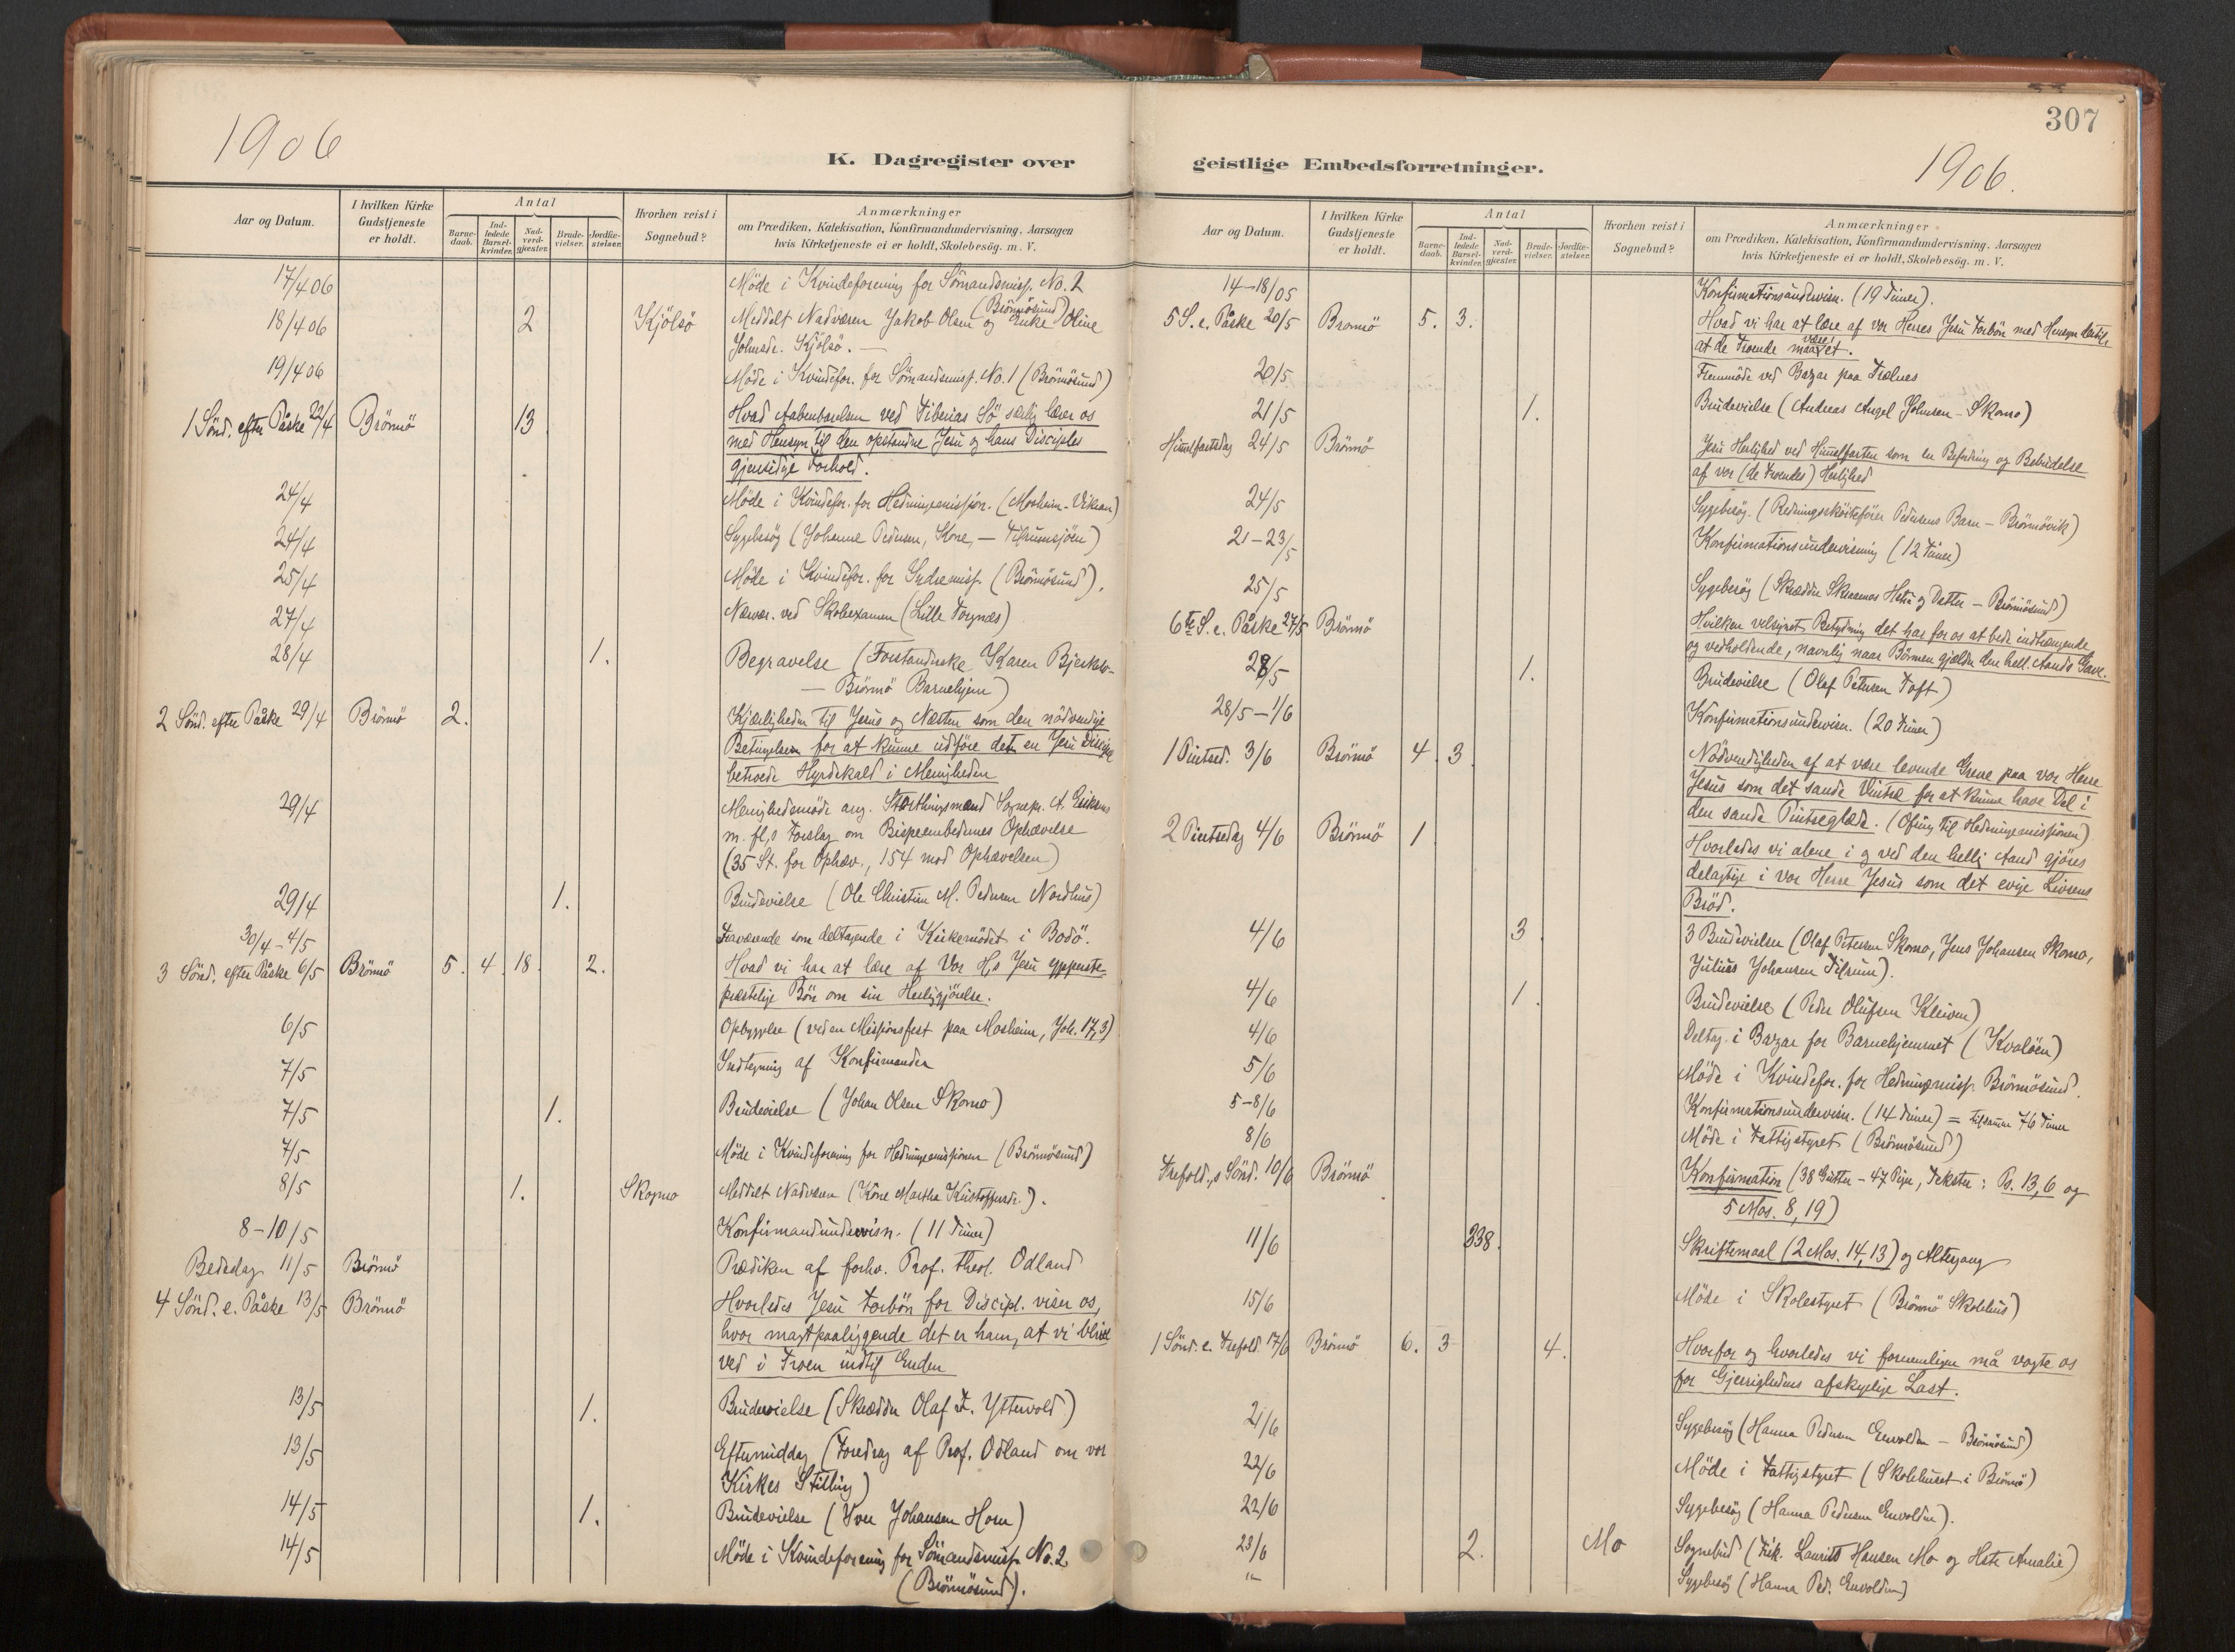 1906
K. Dagregister over
Aar og Datum.
I hvilken Kirke Gudstjeneste er holdt.
Antal
Barnedaab.
Indledede Barselkvinder.
Nadverdgjæster.
Brudevielser.
Jordfæstelser.
Hvorhen reist i Sognebud?
Anmærkninger
om Prædiken, Katekisation, Konfirmandundervisning. Aarsagen
hvis Kirketjeneste ei er holdt, Skolebesög. m. V.
17/4 06 Möde i Kvindeforening for Sömandsmisj. No. 2
(Brönnösund)
18/4 06 2 Kjölsö Meddelt Nadveren Jakob Olsen og Enke Oline
Johnsdr. Kjölsö. —
19/4 06 Möde i Kvindefor. for Sömandsmisj. No. 1 (Brönnösund)
1 Sönd. efter Påske 22/4 Brönnö 13 Hvad Aabenbarelsen ved Tiberias Sö særlig lærer os
med Hensyn til den opstandne Jesu og hans Disciples
gjensidige Forhold.
24/4 Möde i Kvindefor. for Hedningemissjon. (Mosheim - Vikran)
24/4 Sygebesög (Johanne Pedersen, Kone, — Tilrumsjöen)
25/4 Möde i Kvindefor. for Indremisj. (Brönnösund).
27/4 Nærvær. ved Skoleexamen (Lille Torgnæs)
28/4 1. Begravelse (Forstanderske Karen Bjerkebo-
— Brönnö Barnehjem)
2 Sönd. efter Påske 29/4 Brönnö 2. Kjærligheden til Jesus og Næsten som den nödvendige
Betingelsen for at kunne udföre det en Jesu Discipel
betroede Hyrdekald i Menigheden
29/4 Menighedsmöde ang. Storthingsmand Sognepr. A. Eriksens
m. fl,s Forslag om Bispeembedernes Ophævelse
(35 St. for Ophæv., 154 mod Ophævelsen)
29/4 1. Brudevielse (Ole Christian M. Pedersen Nordhus)
30/4 - 4/5 Fraværende som deltagende i Kirkemödet i Bodö.
3 Sönd. efter Påske 6/5 Brönnö 5. 4. 18. 2. Hvad vi har at lære af Vor H,s Jesu ypperste-
præstelige Bön om sin Helliggjörelse.
6/5 Opbyggelse (ved en Missjonsfest paa Mosheim, Joh. 17,3)
7/5 Indtegning af Konfirmander
7/5 1. Brudevielse (Johan Olsen Skomo)
7/5 Möde i Kvindeforening for Hedningemissjonen (Brönnösund)
8/5 1. Skogmo Meddelt Nadveren (Kone Martha Kristoffersdr.).
8-10/5 Konfirmandundervisn. (11 Timer)
Bededag 11/5 Brönnö Prædiken af forhv. Prof. theol. Odland
4 Sönd. e. Påske 13/5 Brönnö Hvorledes Jesu Forbön for Discipl. viser os,
hvor magtpaaliggende det er ham, at vi bliver
ved i Troen indtil Enden
13/5 1. Brudevielse (Skrædder Olaf T. Yttervold)
13/5 Eftermiddag (Foredrag af Prof. Odland om vor
Kirkes Stilling)
14/5 1. Brudevielse (Iver Johansen Horn)
14/5 Möde i Kvindeforening for Sömandsmisj. No. 2
(Brönnösund).
307
geistlige Embedsforretninger.
1906.
Aar og Datum.
I hvilken Kirke Gudstjeneste er holdt.
Antal
Barnedaab.
Indledede Barselkvinder.
Nadverdgjæster.
Brudevielser.
Jordfæstelser.
Hvorhen reist i Sognebud?
Anmærkninger
om Prædiken, Katekisation, Konfirmandundervisning. Aarsagen
hvis Kirketjeneste ei er holdt, Skolebesög. m. V.
14-18/05 Konfirmationsundervisn. (19 Timer).
5 S. e. Påske 20/5 Brönnö 5. 3. Hvad vi har at lære af vor Herres Jesu Forbön med Hensyn dertil,
at de Troende maa være et.
20/5 Fremmöde ved Bazar paa Trælnes
21/5 1. Brudevielse (Andreas Angel Johnsen - Skomo)
Himmelfartsdag 24/5 Brönnö Jesu Herlighed ved Himmelfarten som en Befordring og Bebudelse
af vor (de Troendes) Herlighed
24/5 Sygebesög. (Redningssköitefører Pedersens Barn — Brönnövik)
21-23/5 Konfirmationsundervisning (12 Timer)
25/5 Sygebesög (Skrædder Hstr og Datter — Brönnösund)
6te S. e. Påske 27/5 Brönnö Hvilken velsignet Betydning det har for os at bede indtrængende
og vedholdende, navnlig naar Bönnen gjælder den hell. Aands Gave.
28/5 1. Brudevielse (Olaf Petersen Toft)
28/5 - 1/6 Konfirmationsundervisn. (20 Timer)
1 Pintsed. 3/6 Brönnö 4. 3 Nödvendigheden af at være levende Grene paa vor Herre
Jesus som det sande Vintræ for at kunne have Del i
den sande Pintseglæde. (Ofring til Hedningemissjonen)
2 Pintsedag 4/6 Brönnö 1 Hvorledes vi alene i og ved den hellig Aand gjöres
delagtige i vor Herre Jesus som det evige Livsens
Bröd.
4/6 3 3 Brudevielser (Olaf Petersen Skomo, Jens Johansen Skomo,
Julius Johansen Tilrum).
4/6 1. Brudevielse (Peder Olufsen Kleiven)
4/6 Deltag. i Bazar for Barnehjemmet (Kvalöen)
5/6 Möde i Kvindefor. for Hedningmisj. Brönnösund.
5-8/6 Konfirmationsundervisn. (14 Timer) = tilsammen 76 Timer
8/6 Möde i Fattigstyret (Brönnösund)
Trefold.,s Sönd. 10/6 Brönnö Konfirmation (38 Gutter - 47 Piger, Tekster: Ps. 13,6 og
5 Mos. 8,19)
11/6 338. Skriftemaal (2 Mos. 14,13) og Altergang
15/6 Möde i Skolestyret (Brönnö Skolehus)
1 Sönd. e. Trefold. 17/6 Brönnö 6. 3 4. Hvorfor og hvorledes vi fornemligen må vogte os
for Gjerrighedens afskyelige Last.
21/6 Sygebesög (Hanna Pedersen Envolden — Brönnösund)
22/6 Möde i Fattigstyret (Skolehuset i Brönnö)
22/6 Sygebesög (Hanna Pedersen Envolden).
23/6 2. Mo Sognebud (Fisk. Laurits Hansen Mo og Hstr Amalie)
" Sygebesög (Hanna Ped. Envolden)